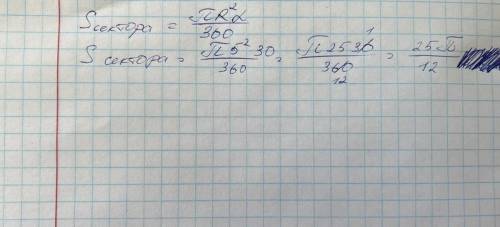 Sсектора = ПR²α/360
S сектора = П5²30/360 = П2530 1/360 12 = 25П/12